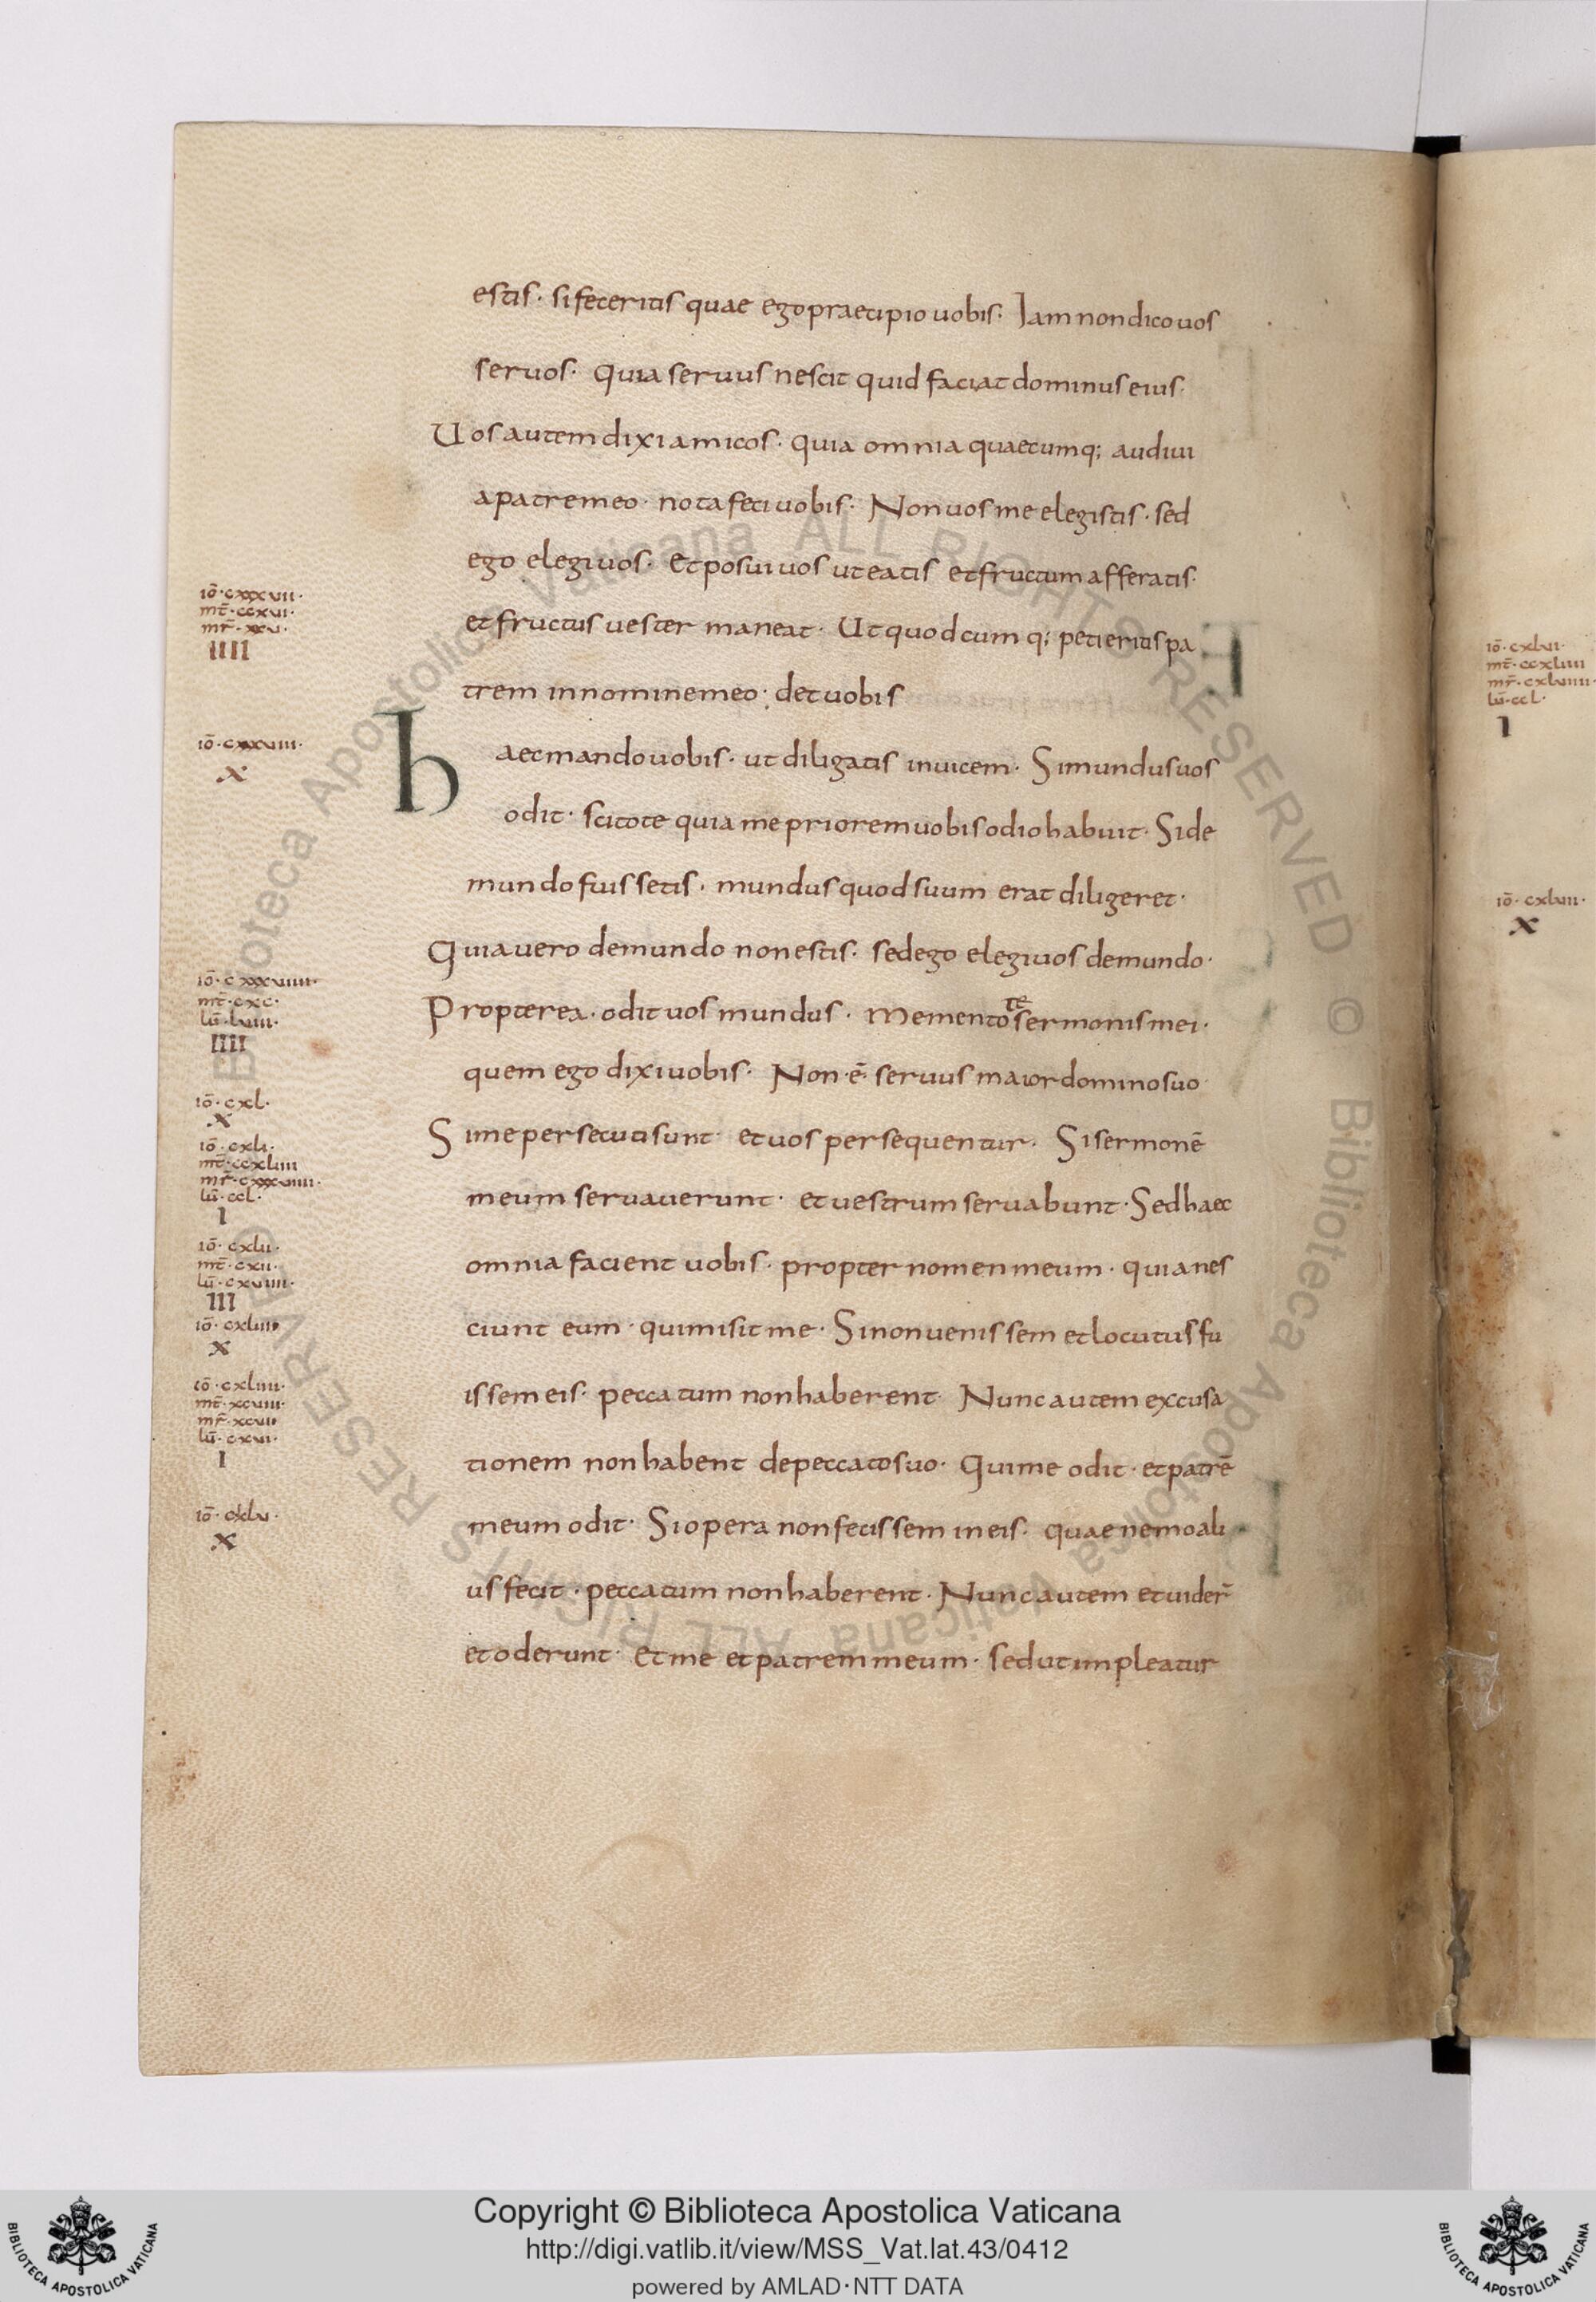 estis · si feceritis quae ego praecipio uobis · Iam non dico uos
seruos · quia seruus nescit quid faciat dominus eius ·
Uos autem dixi amicos · quia omnia quaecumq; audiui
a patre meo · nota feci uobis · Non uos me elegistis · sed
ego elegi uos · Et posui uos ut eatis et fructum afferatis ·
et fructus uester maneat · Ut quodcumq; petieritis pa
trem in nomine meo · det uobis
haec mando uobis · ut diligatis inuicem · Si mundus uos
odit · scitote quia me priorem uobis odio habuit · Si de
mundo fuissetis · mundus quod suum erat diligeret ·
Quia uero de mundo non estis · sed ego elegi uos de mundo ·
Propterea · odit uos mundus · mementote sermonis mei ·
quem ego dixi uobis · Non · ē · seruus maior domino suo ·
Si me persecuti sunt · et uos persequentur · Si sermonē
meum seruauerunt · et uestrum seruabunt · Sed haec
omnia facient uobis · propter nomen meum · quia nes
ciunt eum · qui misit me · Si non uenissem et locutus fu
issem eis · peccatum non haberent · Nunc autem excusa
tionem non habent de peccato suo · Qui me odit · et patrē
meum odit · Si opera non fecissem in eis · quae nemo ali
us fecit · peccatum non haberent · Nunc autem et uider̄
et oderunt · Et me et patrem meum · sed ut impleatur
iō · cxxxvii ·
mt̄ · ccxvi ·
mr̄ · xxv ·
IIII
iō · cxxxviii ·
x
iō · cxxxviiii ·
mt̄ · cxc ·
lū · lviii ·
IIII
iō · cxl ·
x
iō · cxli ·
mt̄ · ccxliiii
mr̄ · cxxxviiii ·
lū · ccl ·
I
iō · cxlii ·
mt̄ · cxii ·
lū · cxviiii ·
III
iō · cxliii
x
iō · cxliiii ·
mt̄ · xcviii ·
mr̄ · xcvii
lū · cxvi ·
I
iō · cxlv ·
x
iō · cxlvi ·
mt̄ · ccxliiii
mr̄ · cxlviiii ·
lū · ccl ·
I
iō · cxlvii ·
x
Biblioteca Apostolica Vaticana ALL RIGHTS RESERVED © Biblioteca Apostolica Vaticana ALL RIGHTS RESERVED ©
Copyright © Biblioteca Apostolica Vaticana
http://digi.vatlib.it/view/MSS_Vat.lat.43/0412
powered by AMLAD·NTT DATA
BIBLIOTECA APOSTOLICA VATICANA
BIBLIOTECA APOSTOLICA VATICANA